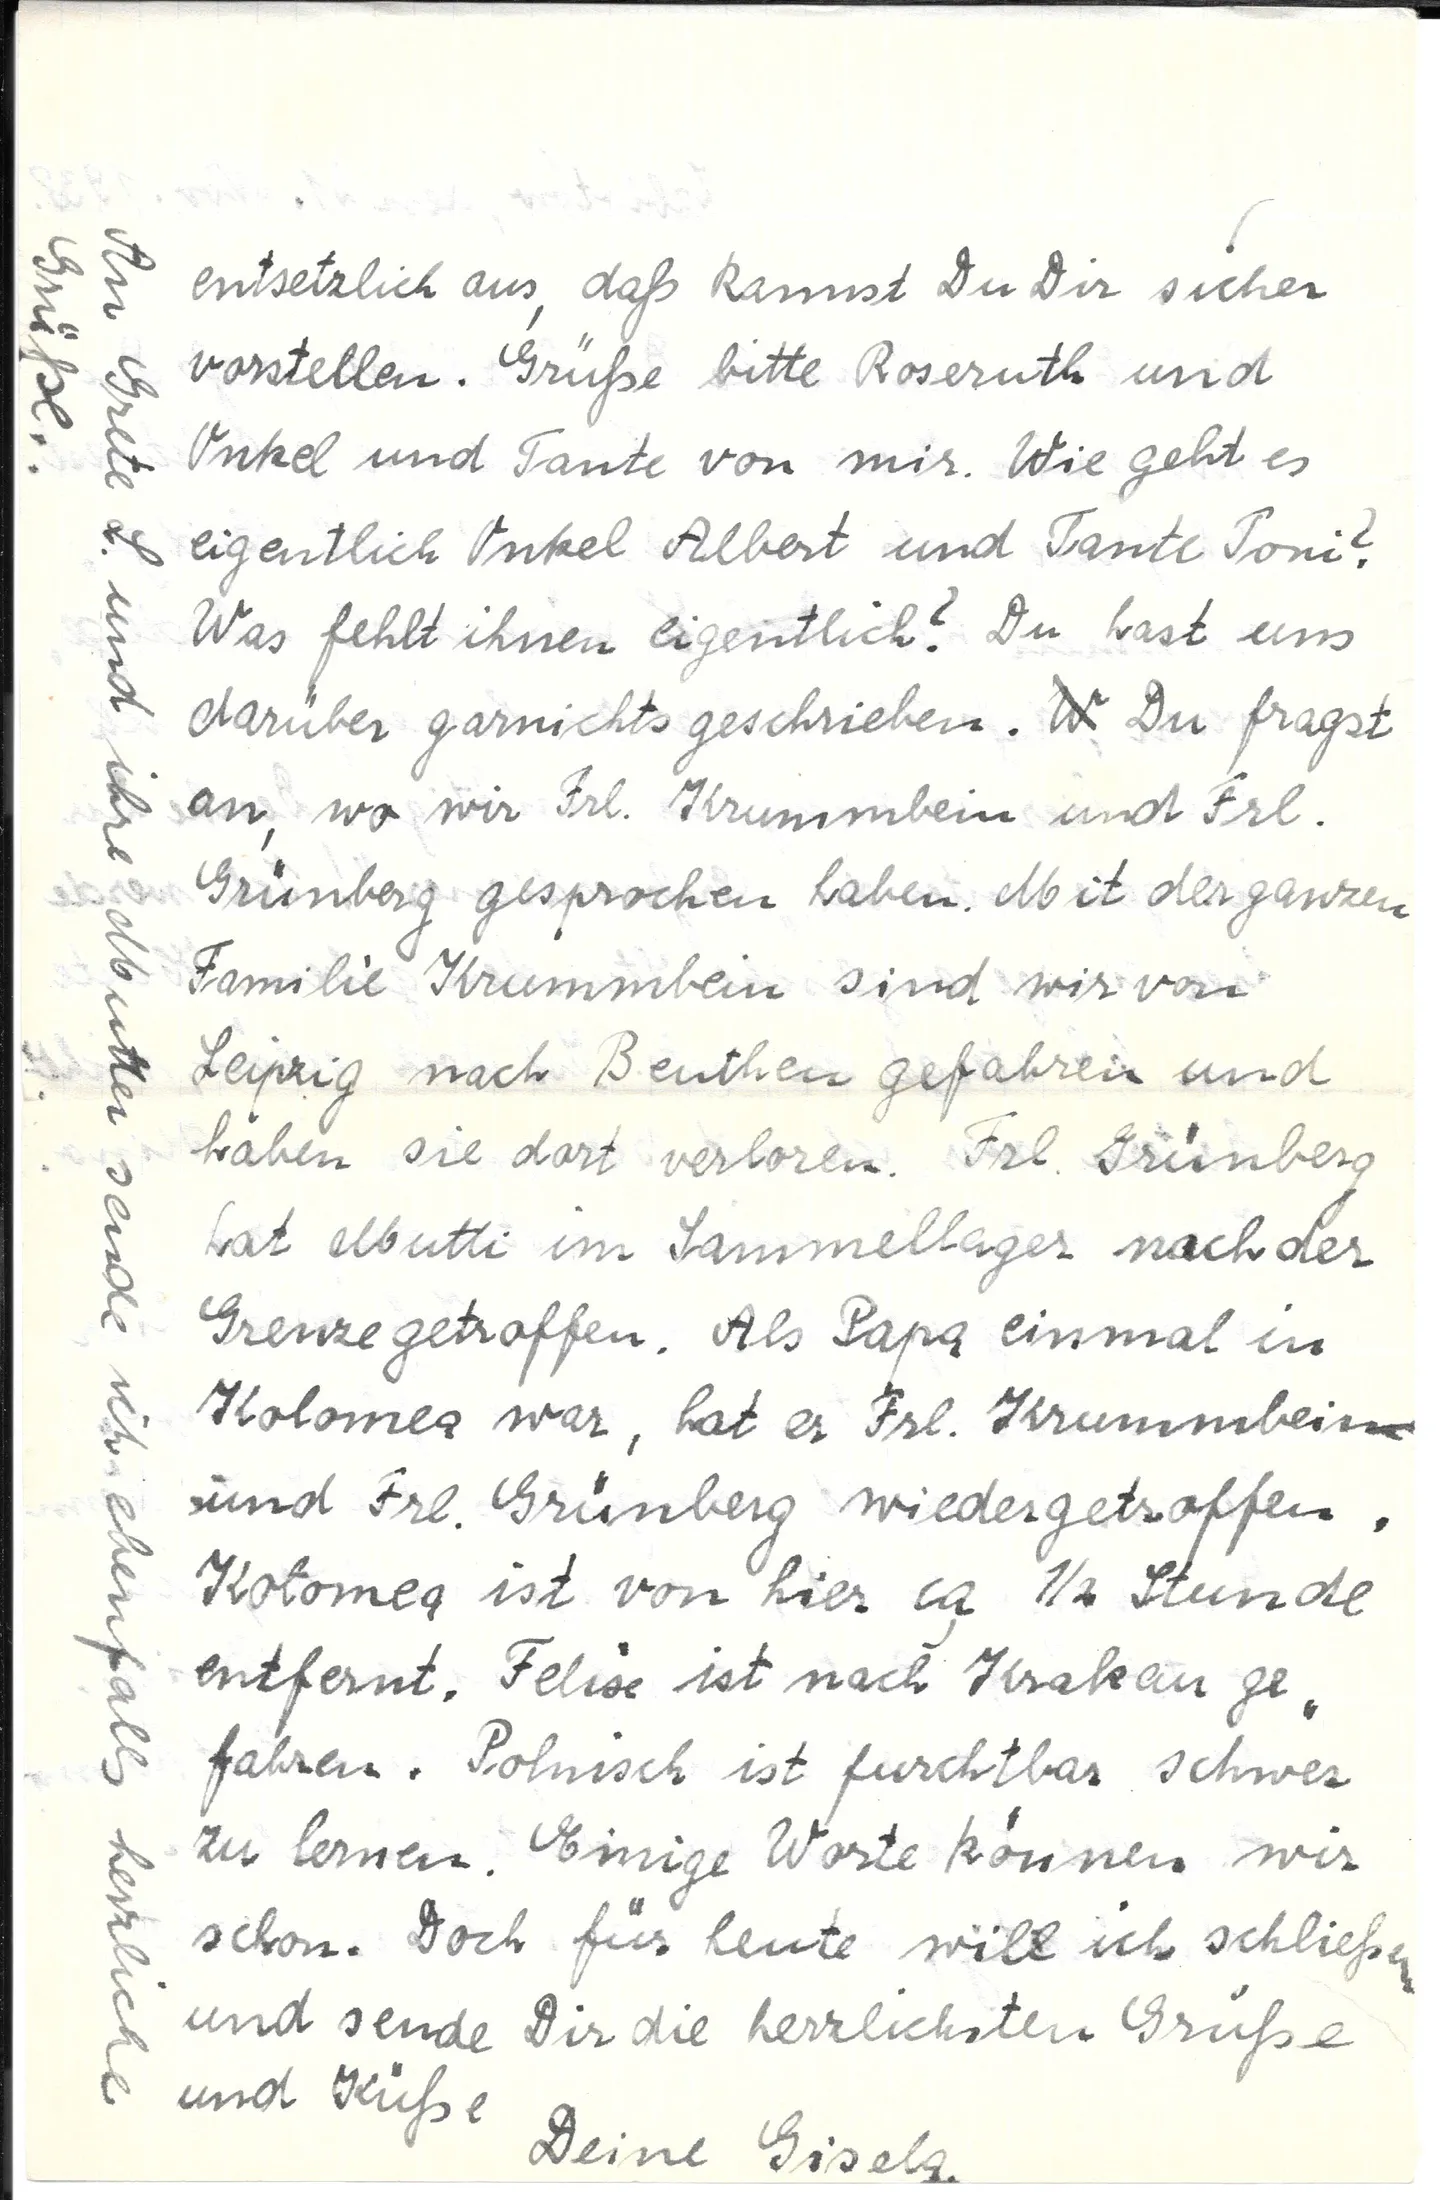 entsetzlich aus, daß kannst Du Dir sicher
vorstellen. Grüße bitte Roseruth und
Onkel und Tante von mir. Wie geht es
eigentlich Onkel Albert und Tante Toni?
Was fehlt ihnen eigentlich? Du hast uns
darüber garnichts geschrieben. W Du fragst
an, wo wir Frl. Krummbein und Frl.
Grünberg gesprochen haben. Mit der ganzen
Familie Krummbein sind wir von
Leipzig nach Beuthen gefahren und
haben sie dort verloren. Frl. Grünberg
hat Mutti im Sammellager nach der
Grenze getroffen. Als Papa einmal in
Kolomea war, hat er Frl. Krummbein
und Frl. Grünberg wiedergetroffen.
Kołomea ist von hier ca 1/2 Stunde
entfernt. Felix ist nach Krakau ge„
fahren. Polnisch ist furchtbar schwer
zu lernen. Einige Worte können wir
schon. Doch für heute will ich schließen
und sende Dir die herzlichsten Grüße
und Küße
Deine Gisela.
An Grete L. und ihre Mutter sende ich ebenfalls herzliche
Grüße.